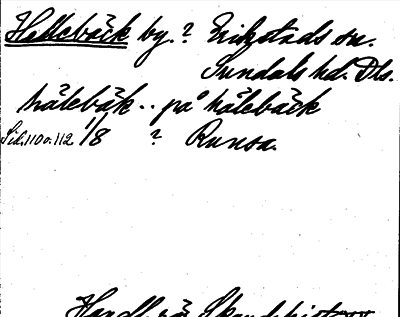 Hellebäck by. ? Erikstads sn.
Sundals hd. Dls.
hälebäk .. på hälebäck
Sid. 110 o. 112 1/8 ? Runsa.
Handl. rör. Skand. histor